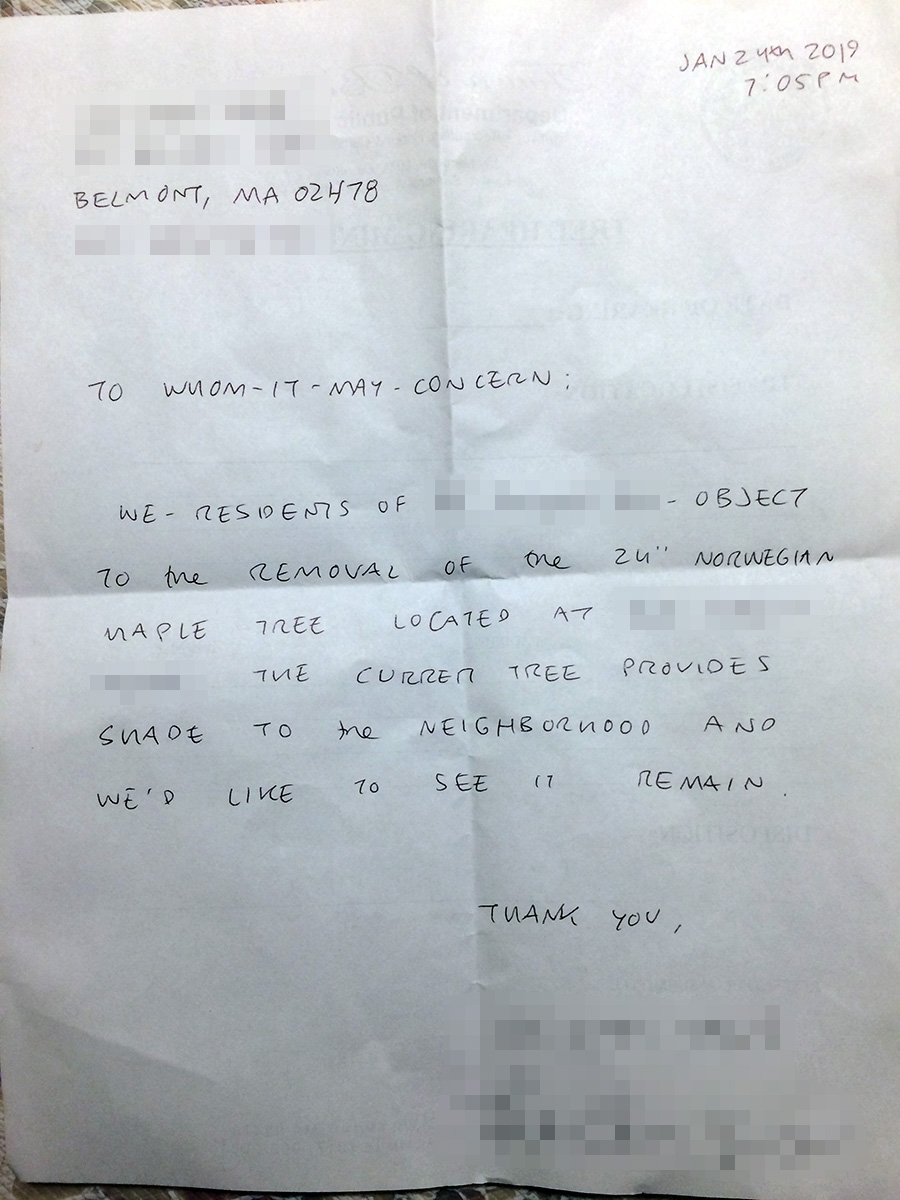 JAN 24th 2019
7:05PM
BELMONT, MA 02478
TO WHOM-IT-MAY-CONCERN:
WE- RESIDENTS OF - OBJECT
TO the REMOVAL OF the 24" NORWEGIAN
MAPLE TREE LOCATED AT
THE CURRENT TREE PROVIDES
SHADE TO the NEIGHBORHOOD AND
WE'D LIKE TO SEE IT REMAIN.
THANK YOU,